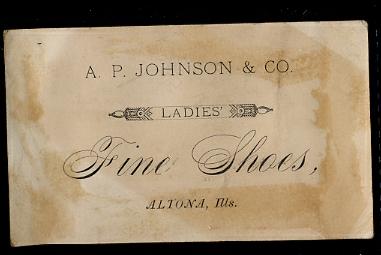 A. P. JOHNSON & CO.
LADIES'
Fine Shoes,
ALTONA, Ills.